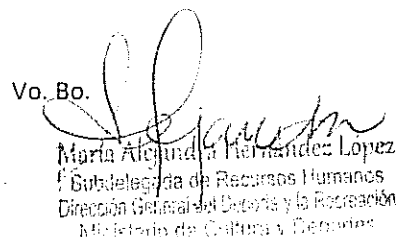 Vo. Bo.
María Alejandra Hernández López
Subdelegada de Recursos Humanos
Dirección General del Deporte y la Recreación
Ministerio de Cultura y Deportes